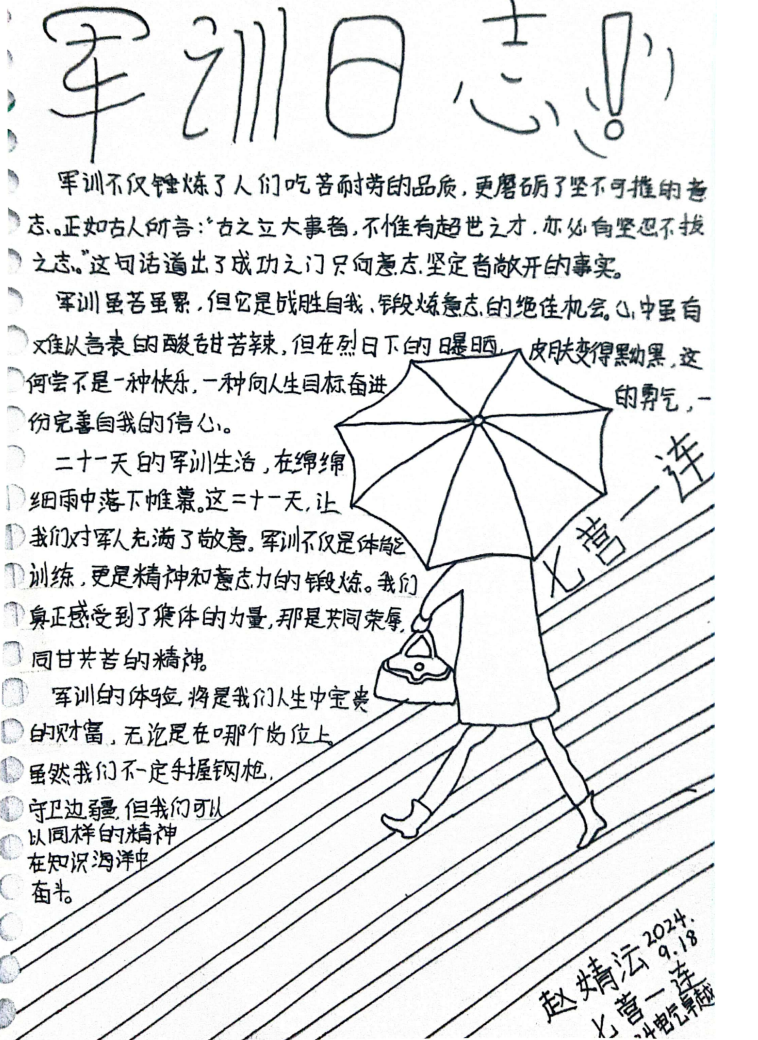 军训日志!
军训不仅锤炼了人们吃苦耐劳的品质，更磨砺了坚不可摧的意
志。正如古人所言："古之立大事者，不惟有超世之才，亦必有坚忍不拔
之志。"这句话道出了成功之门只向意志坚定者敞开的事实。
军训虽苦虽累，但它是战胜自我、锻炼意志的绝佳机会。心中虽有
难以言表的酸甜苦辣，但在烈日下的曝晒，皮肤变得黝黑，这
何尝不是一种快乐，一种向人生目标奋进的勇气，一
份完善自我的信心。
二十一天的军训生活，在绵绵
细雨中落下帷幕。这二十一天，让
我们对军人充满了敬意。军训不仅是体能
训练，更是精神和意志力的锻炼。我们
真正感受到了集体的力量，那是共同荣辱，
同甘共苦的精神。
军训的体验，将是我们人生中宝贵
的财富，无论是在哪个岗位上。
虽然我们不一定手握钢枪，
守卫边疆，但我们可以
以同样的精神
在知识海洋中
奋斗。
七营一连
赵婧沄 2024.
9.18
七营一连
电气卓越